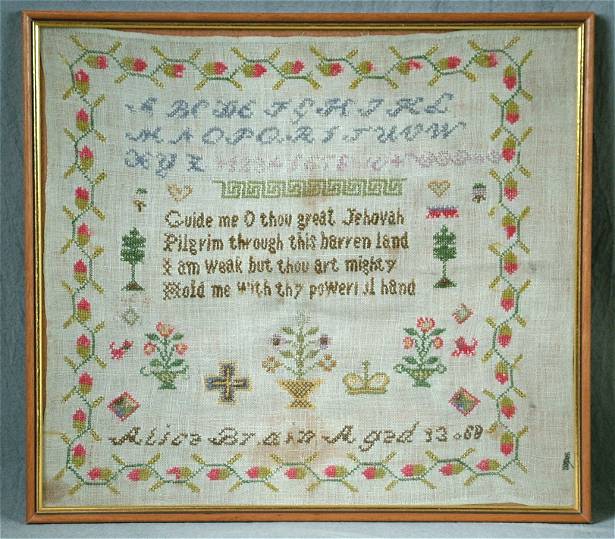 A B C D E F G H I K L
M N O P Q R S T U V W
X Y Z
Guide me O thou great Jehovah
Pilgrim through this barren land
I am weak but thou art mighty
Hold me with thy powerful hand
Alice Brain Aged 13